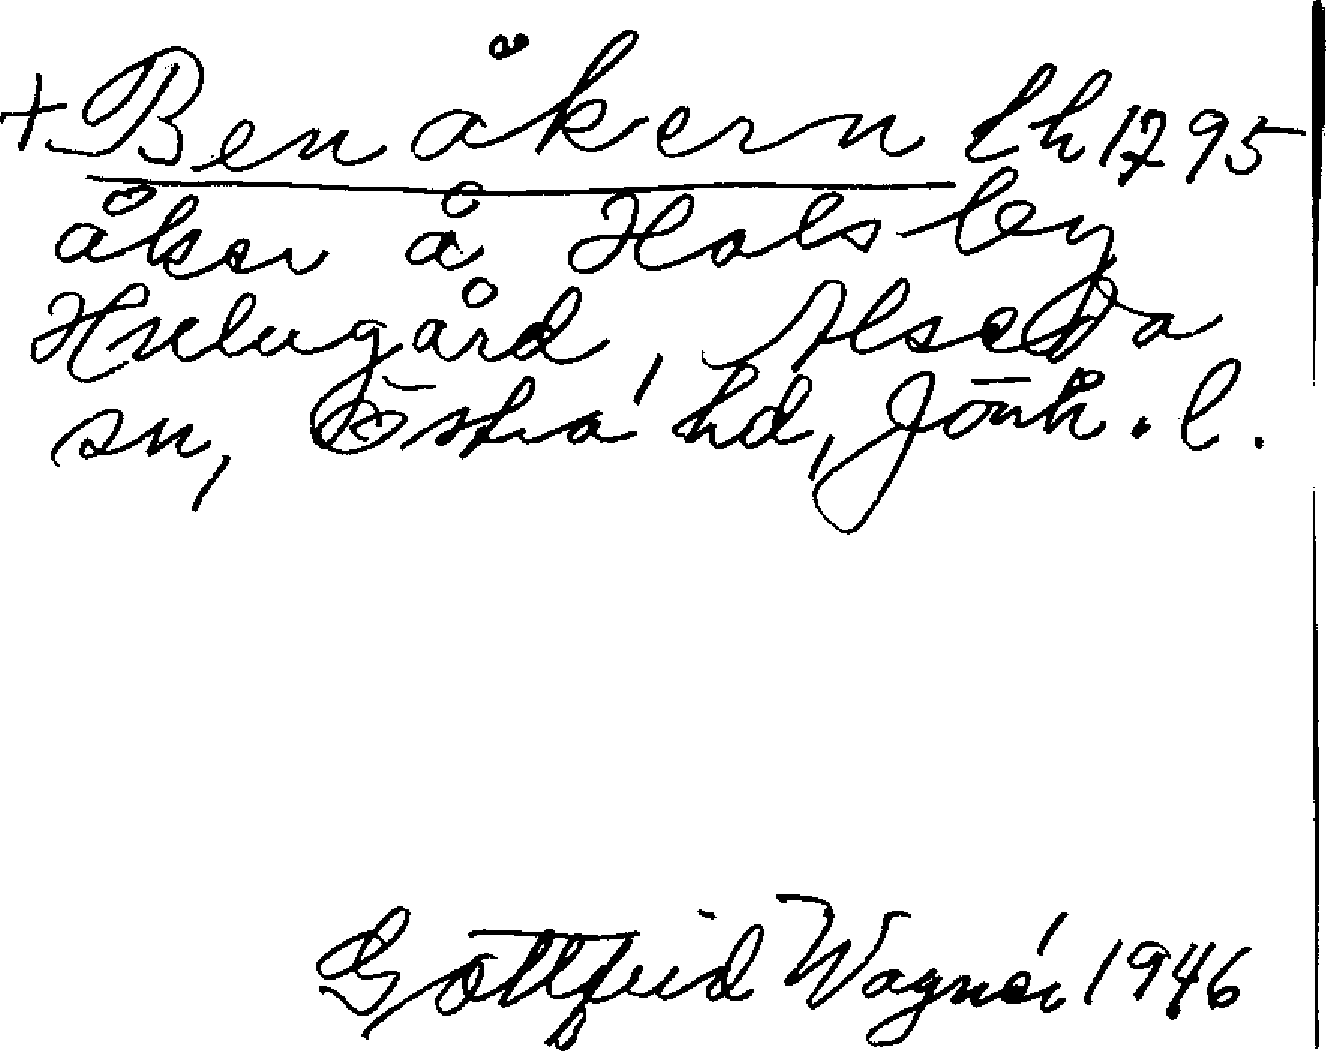 + Benåkern lh 1795
åker å Holsby
Hulugård, Alseda
sn, Östra hd, Jönk. l.
Gottfrid Wagnér 1946